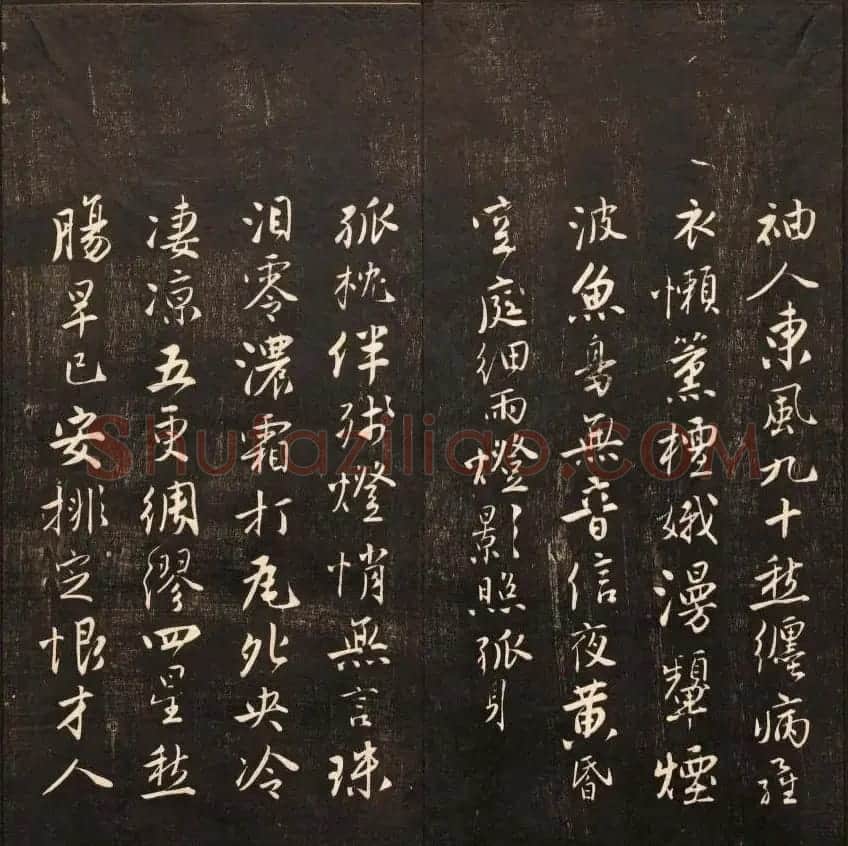 袖人東風九十愁纏病羅
衣懶薰檀娥漫顰煙
波魚鳥無音信夜黃昏
空庭細雨燈影照孤身
孤枕伴殘燈悄無言珠
泪零濃霜打瓦夗央冷
凄凉五更綢繆四星愁
腸早已安排定恨才人
Shufaziliao.COM